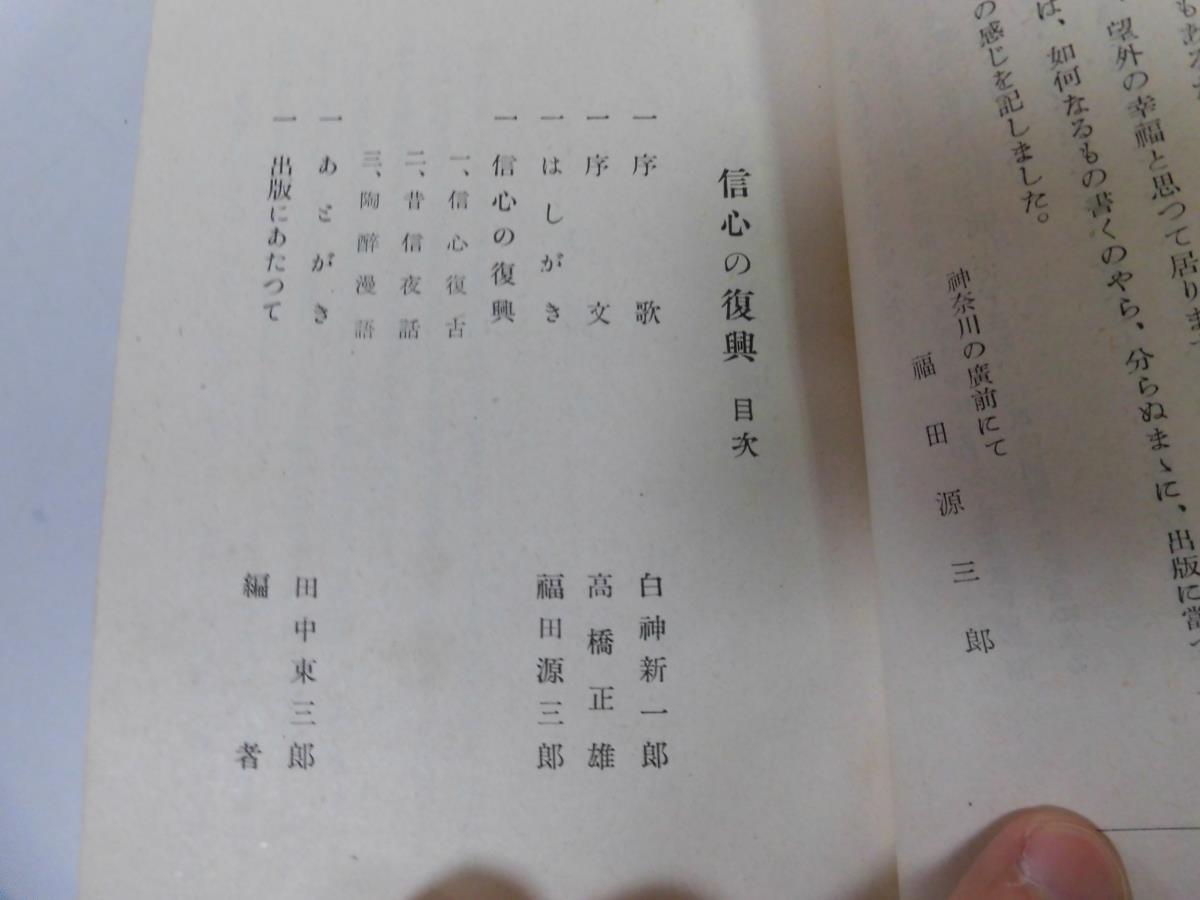 望外の幸福と思つて居りま
は、如何なるもの書くのやら、分らぬまゝに、出版に當つ
の感じを記しました。
神奈川の廣前にて
福田源三郎
信心の復興 目次
一 序歌 白神新一郎
一 序文 高橋正雄
一 はしがき 福田源三郎
一 信心の復興
一、信心復古
二、昔信夜話
三、陶醉漫語
一 あとがき 田中東三郎
一 出版にあたつて 編者